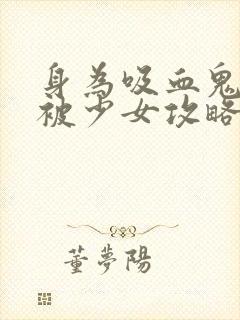 身為吸血鬼
被少女攻略
董夢陽